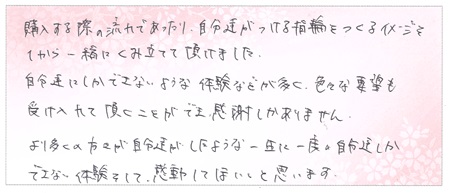 購入する際の流れであったり、自分達がつける指輪をつくるイメージを
1から一緒にくみ立てて頂けました。
自分達にしかできないような体験などが多く、色々な要望も
受け入れて頂くことができ、感謝しかありません。
より多くの方々が自分達がしたような一生に一度の自分達しか
できない体験をして、感動してほしいと思います。